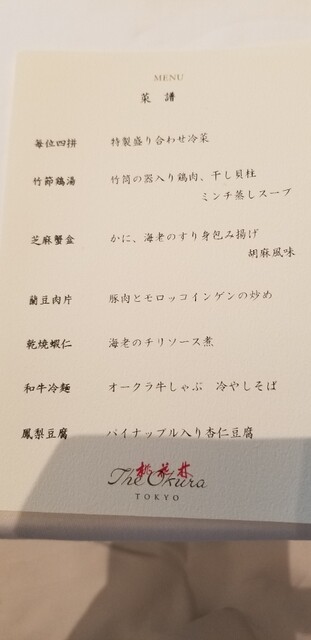 MENU
菜 譜
每位四拼 特製盛り合わせ冷菜
竹節鶏湯 竹筒の器入り鶏肉、干し貝柱
ミンチ蒸しスープ
芝麻蟹盒 かに、海老のすり身包み揚げ
胡麻風味
蘭豆肉片 豚肉とモロッコインゲンの炒め
乾焼蝦仁 海老のチリソース煮
和牛冷麵 オークラ牛しゃぶ 冷やしそば
鳳梨豆腐 パイナップル入り杏仁豆腐
桃花林
The Okura
TOKYO